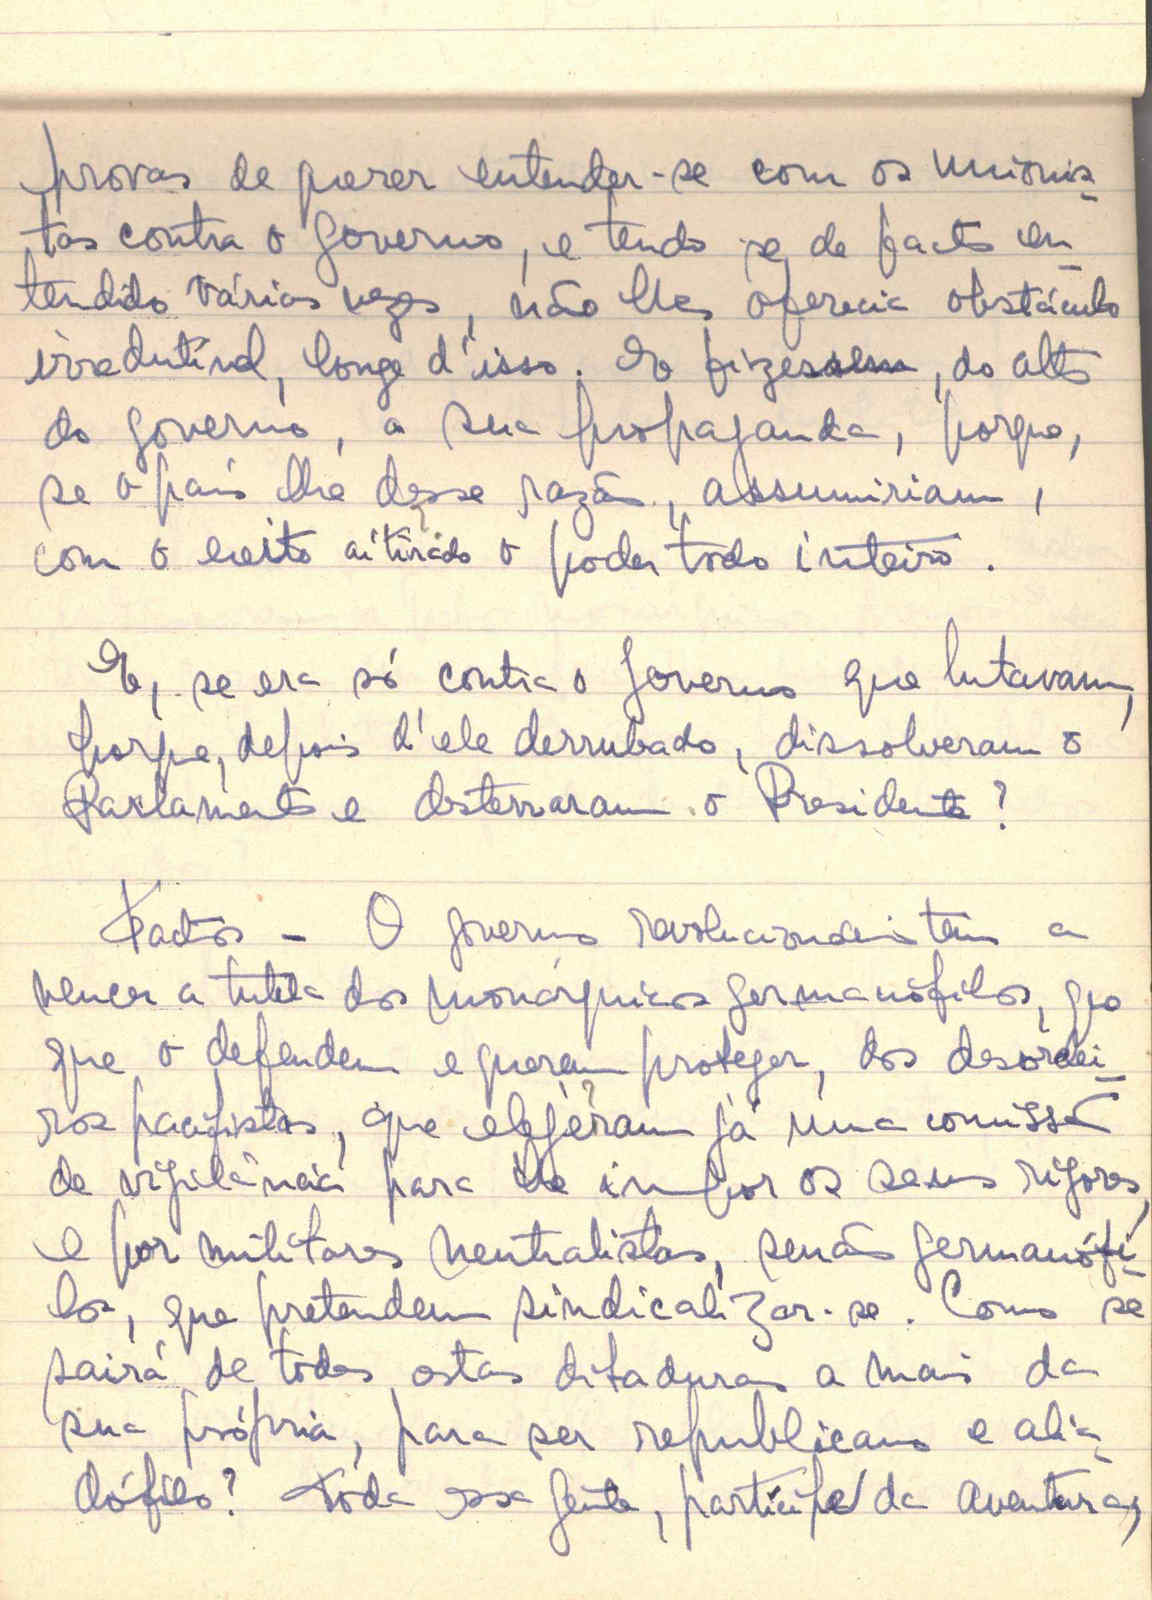 provas de querer entender-se com os unionis-
tas contra o governo, e tendo se de facto en-
tendido várias vezes, não lhes oferecia obstáculo
irredutível, longe d'isso. E fizessem, do alto
do governo, a sua propaganda, porque,
se o país lhe desse razão, assumiriam,
com o eleito o poder todo inteiro.
E, se era só contra o Governo que lutavam,
porque, depois d'ele derrubado, dissolveram o
Parlamento e desterraram o Presidente?
Factos - O governo revolucionário tem a
vencer a tutela dos monárquicos germanófilos, que
que o defendem e querem proteger, dos desordei-
ros pacifistas, que elegeram já uma comissão
de vigilância para lhe impor os seus rigores,
e por militares neutralistas, senão germanófi-
los, que pretendem sindicalizar-se. Como se
sairá de todas estas ditaduras a mais da
sua própria, para ser republicano e alia-
dófilo? Toda essa gente, partícipe da aventura,